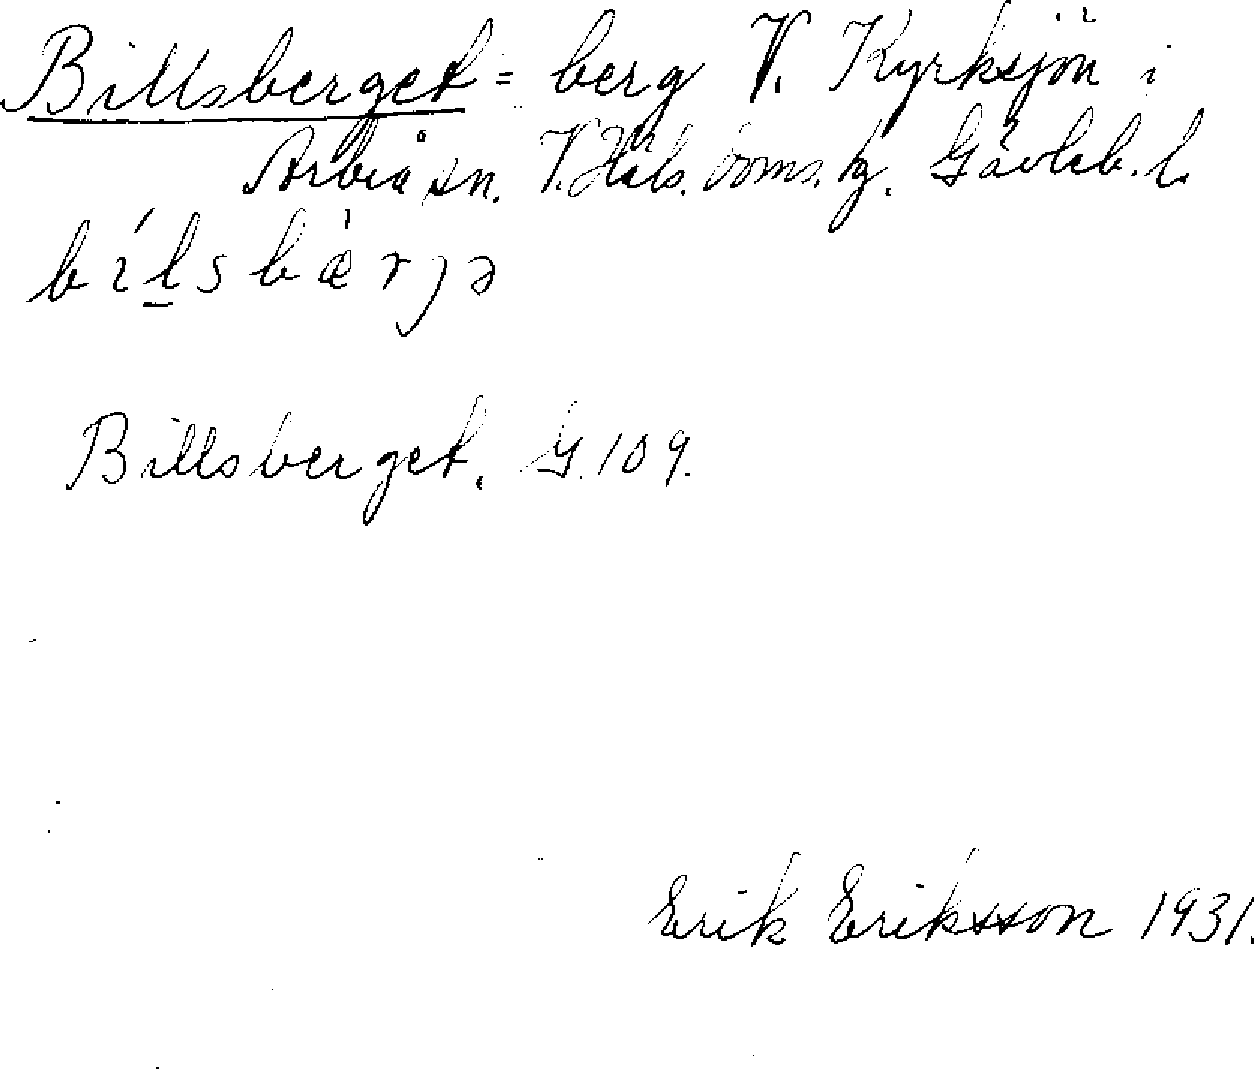 Billsberget = berg V. Kyrksjön i
Arbrå sn. V. Häls. doms. hg. Gävleb. l.
bílsbæ̀rjə
Billsberget. G. 109.
Erik Eriksson 1931.